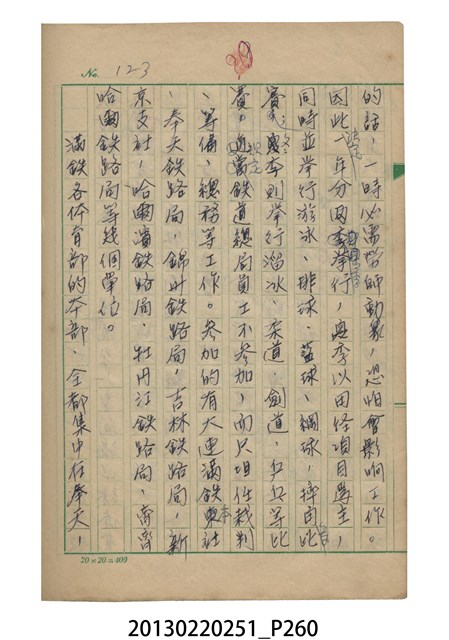 No. 12-3
的話,一時必需勞師動衆,恐怕會影响工作。
因此一年分兩季舉行,夏季以田徑項目為主,
同時並舉行游泳、排球、藍球、網球,摔角比
賽,冬季則舉行溜冰、柔道、劍道、乒乓等比
賽。鐵道總局員工不參加,而只担任裁判
、籌備、總務等工作。參加的有大連滿鉄本社
、奉天鉄路局,錦州鉄路局,吉林鉄路局,新
京支社,哈爾濱鉄路局、牡丹江鉄路局,齊齊
哈爾鉄路局等幾個單位。
滿鉄各体育部的本部,全都集中在奉天,
20×20=400
20130220251_P260